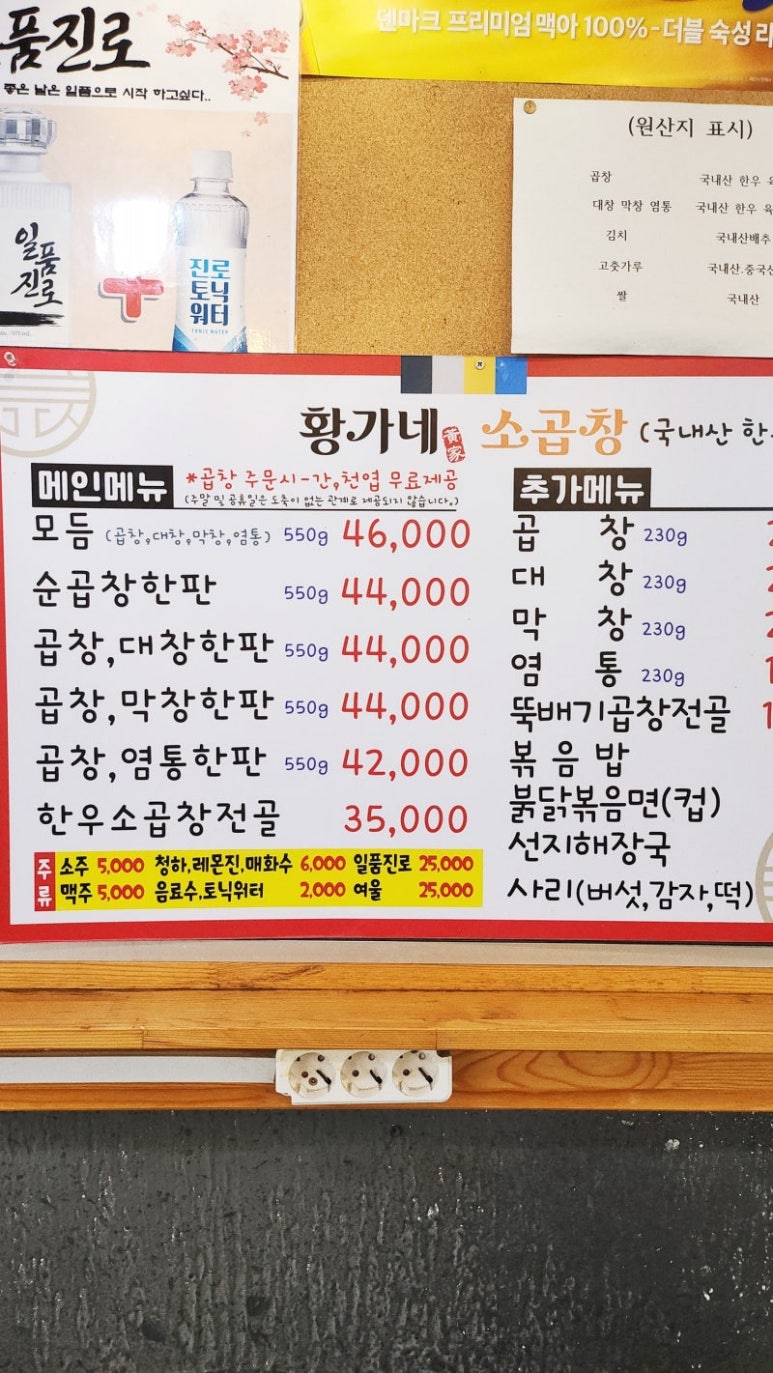 품진로
좋은 날은 일품으로 시작 하고싶다..
일품
진로
진로
토닉
워터
TONIC WATER
덴마크 프리미엄 맥아 100%-더블 숙성
(원산지 표시)
곱창 국내산 한우
대창 막창 염통 국내산 한우
김치 국내산배추
고춧가루 국내산.중국산
쌀 국내산
황가네 黃家 소곱창 (국내산
메인메뉴 *곱창 주문시-간,천엽 무료제공
(주말 및 공휴일은 도축이 없는 관계로 제공되지 않습니다.)
모듬 (곱창,대창,막창,염통) 550g 46,000
순곱창한판 550g 44,000
곱창,대창한판 550g 44,000
곱창,막창한판 550g 44,000
곱창,염통한판 550g 42,000
한우소곱창전골 35,000
주류
소주 5,000 청하,레몬진,매화수 6,000 일품진로 25,000
맥주 5,000 음료수,토닉워터 2,000 여울 25,000
추가메뉴
곱창 230g
대창 230g
막창 230g
염통 230g
뚝배기곱창전골
볶음밥
붉닭볶음면(컵)
선지해장국
사리(버섯,감자,떡)